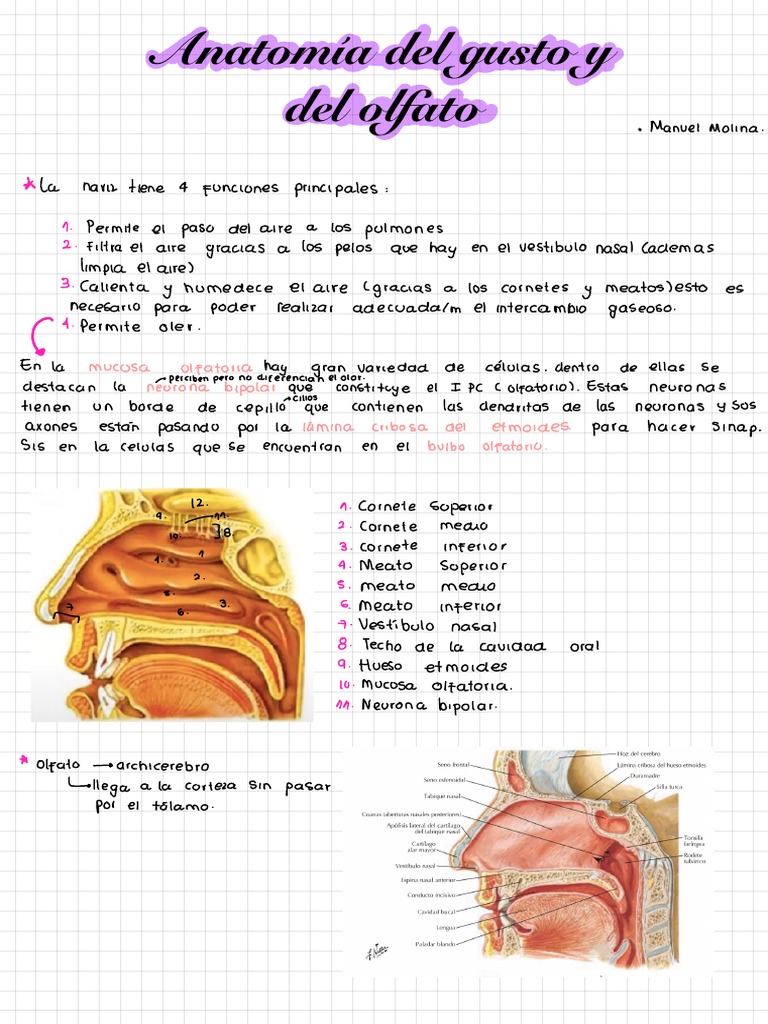 Anatomía del gusto y
del olfato
. Manuel Molina.
* La nariz tiene 4 funciones principales:
1. Permite el paso del aire a los pulmones
2. Filtra el aire gracias a los pelos que hay en el vestíbulo nasal (ademas
limpia el aire)
3. Calienta y humedece el aire (gracias a los cornetes y meatos) esto es
necesario para poder realizar adecuada/m el intercambio gaseoso.
4. Permite oler.
En la mucosa olfatoria hay gran variedad de células. dentro de ellas se
percíben pero no diferencian el olor.
destacan la neurona bipolar que constituye el I PC (olfatorio). Estas neuronas
cilios
tienen un borde de cepillo que contienen las dendritas de las neuronas y sus
axones están pasando por la lámina cribosa del etmoides para hacer sinap.
sis en la celulas que se encuentran en el bulbo olfatorio.
12.
9.
11.
10.
8
1
4.
2.
5.
3.
6.
7
1. Cornete Superior
2. Cornete medio
3. cornete inferior
4. Meato Superior
5. meato medio
6. Meato inferior
7. Vestíbulo nasal
8. Techo de la cavidad oral
9. Hueso etmoides
10. Mucosa olfatoria.
11. Neurona bipolar.
* Olfato → archicerebro
→ llega a la corteza sin pasar
por el tólamo.
Hoz del cerebro
Seno frontal
Lámina cribosa del hueso etmoides
Duramadre
Seno esfenoidal
Silla turca
Tabique nasal
Coanas (aberturas nasales posteriores)
Apófisis lateral del cartílago
del tabique nasal
Tonsila
faríngea
Cartílago
alar mayor
Rodete
tubárico
Vestíbulo nasal
Espina nasal anterior
Conducto incisivo
Cavidad bucal
Lengua
Paladar blando